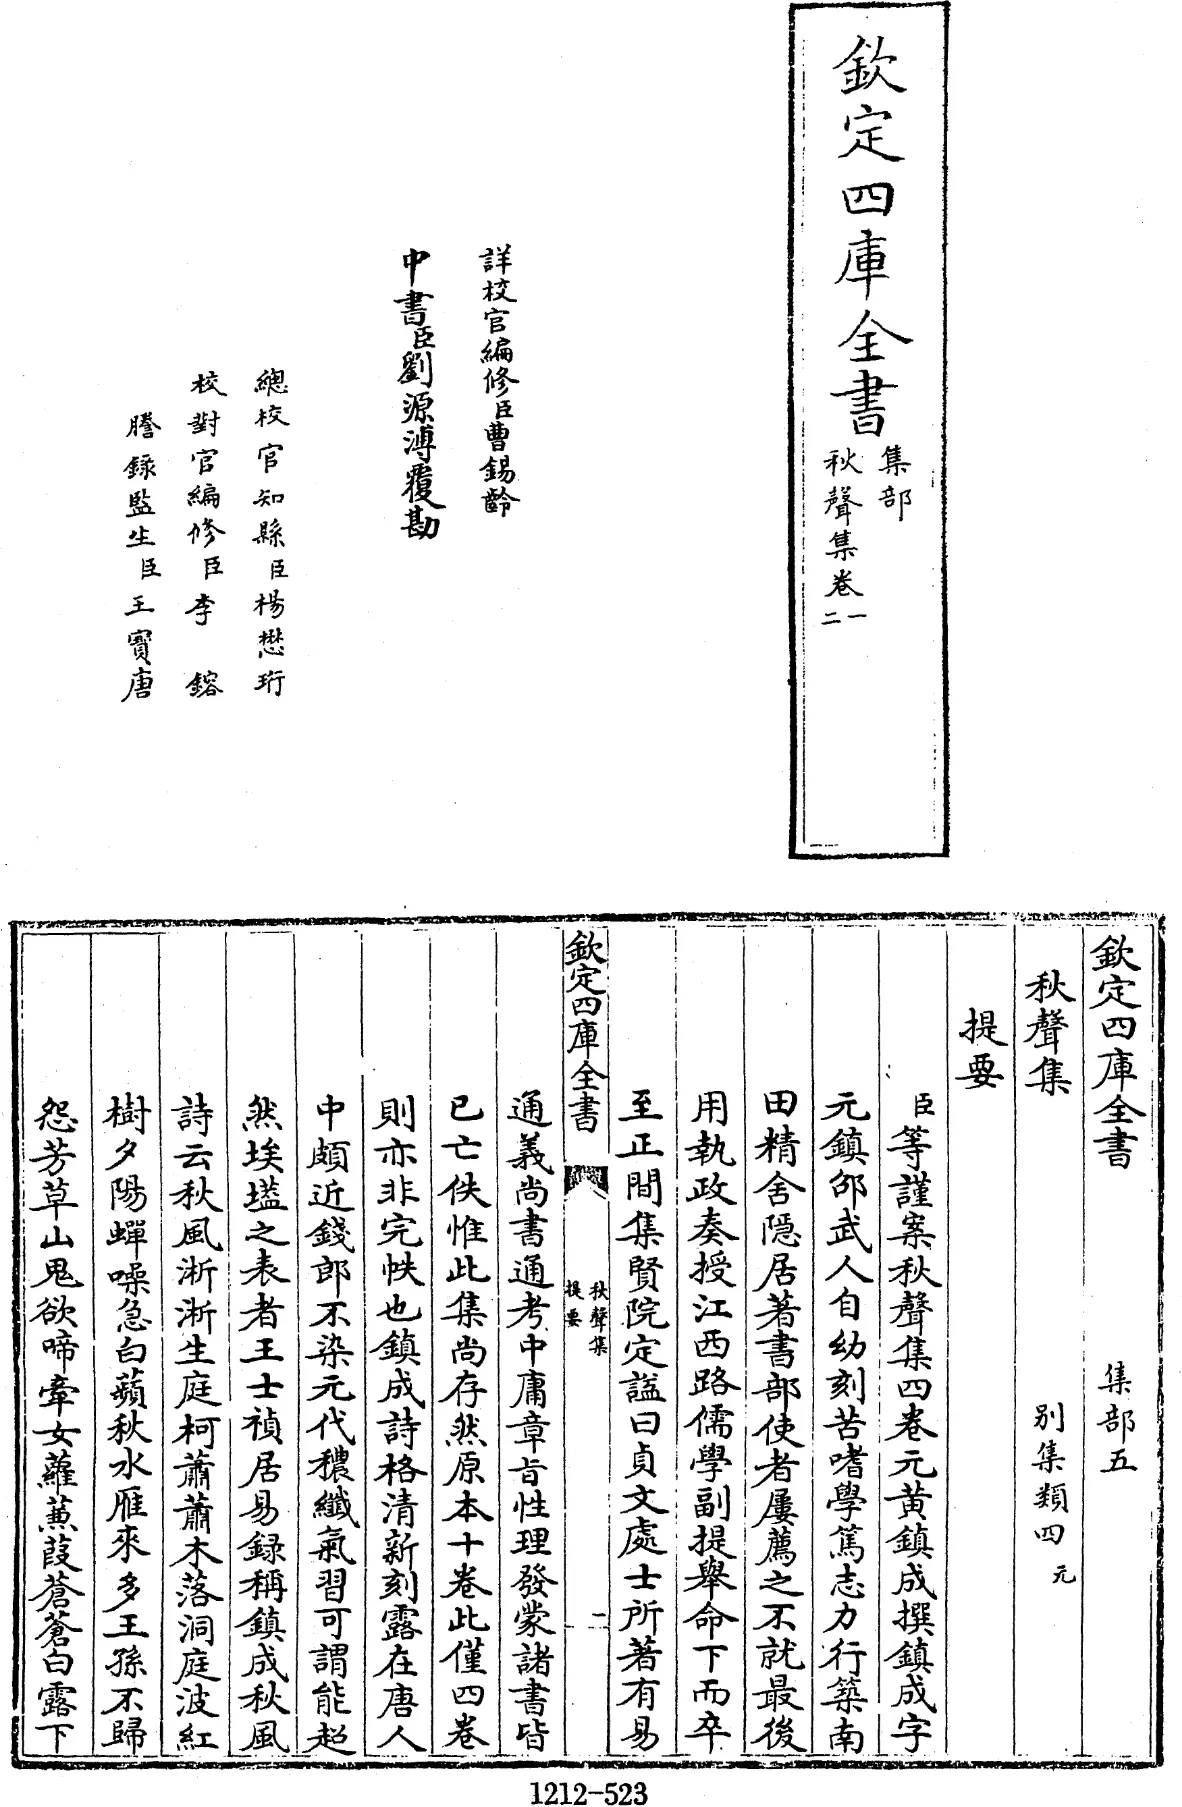 欽定四庫全書
集部
秋聲集卷一
二
詳校官編修臣曹錫齡
中書臣劉源溥覆勘
總校官知縣臣楊懋珩
校對官編修臣李鎔
謄錄監生臣王寶唐
欽定四庫全書 集部五
秋聲集 别集類四 元
提要
臣等謹案秋聲集四卷元黄鎮成撰鎮成字
元鎮邵武人自幼刻苦嗜學篤志力行築南
田精舍隱居著書部使者屢薦之不就最後
用執政奏授江西路儒學副提舉命下而卒
至正間集賢院定謚曰貞文處士所著有易
欽定四庫全書 秋聲集
提要 二
通義尚書通考中庸章旨性理發蒙諸書皆
已亡佚惟此集尚存然原本十卷此僅四卷
則亦非完帙也鎮成詩格清新刻露在唐人
中頗近錢郎不染元代穠纖氣習可謂能超
然埃壒之表者王士禎居易錄稱鎮成秋風
詩云秋風淅淅生庭柯蕭蕭木落洞庭波紅
樹夕陽蟬噪急白蘋秋水雁來多王孫不歸
怨芳草山鬼欲啼牽女蘿蒹葭蒼蒼白露下
1212-523